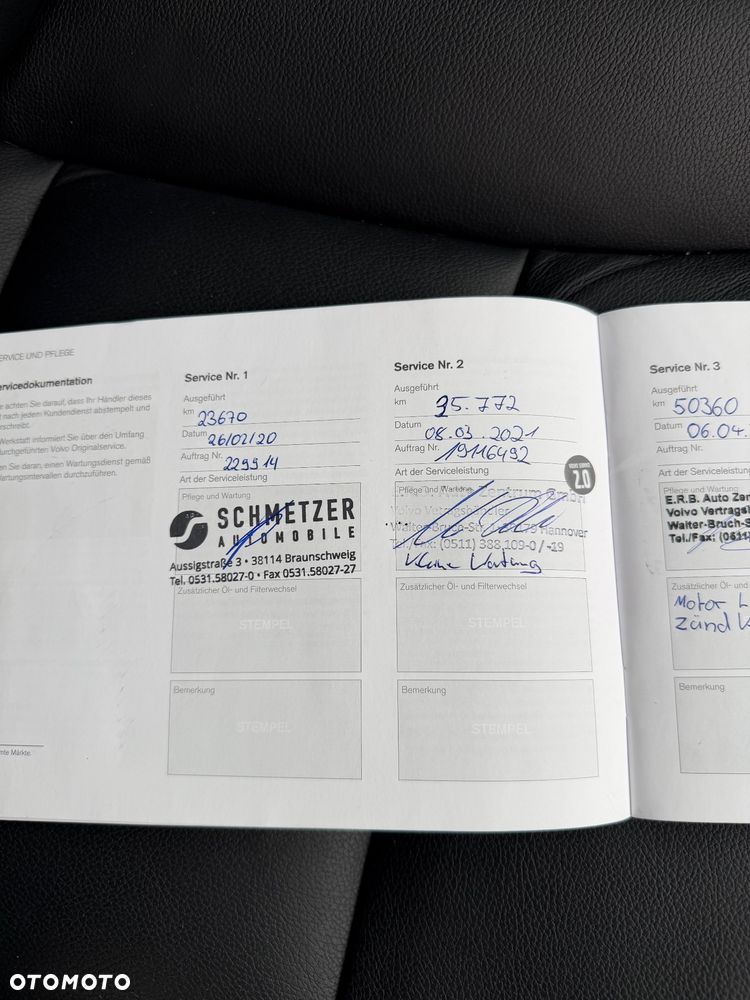 SERVICE UND PFLEGE
ervicedokumentation
e achten Sie darauf, dass Ihr Händler dieses
nach jedem Kundendienst abstempelt und
schreibt.
Werkstatt informiert Sie über den Umfang
durchgeführten Volvo Originalservice.
en Sie daran, einen Wartungsdienst gemäß
Wartungsintervallen durchzuführen.
mte Märkte.
Service Nr. 1
Ausgeführt
km 23670
Datum 26/02/20
Auftrag Nr. 229914
Art der Serviceleistung
Pflege und Wartung
SCHMETZER
AUTOMOBILE
Aussigstraße 3 • 38114 Braunschweig
Tel. 0531.58027-0 • Fax 0531.58027-27
Zusätzlicher Öl- und Filterwechsel
STEMPEL
Bemerkung
STEMPEL
Service Nr. 2
Ausgeführt
km 35.772
Datum 08.03.2021
Auftrag Nr. 19116492
Art der Serviceleistung
2.0
Pflege und Wartung Zentrum GmbH
Volvo Vertragshändler
Walter-Bruch-Str. Hannover
Tel./Fax: (0511) 388.109-0 / -19
Kleine Wartung
Zusätzlicher Öl- und Filterwechsel
STEMPEL
Bemerkung
STEMPEL
Service Nr. 3
Ausgeführt
km 50360
Datum 06.04.
Auftrag Nr.
Art der Serviceleistung
Pflege und Wartung
E.R.B. Auto Zen
Volvo Vertragsh
Walter-Bruch-S
Tel./Fax: (0511)
Zusätzlicher Öl- und
Motor L
Zünd K
Bemerkung
OTOMOTO